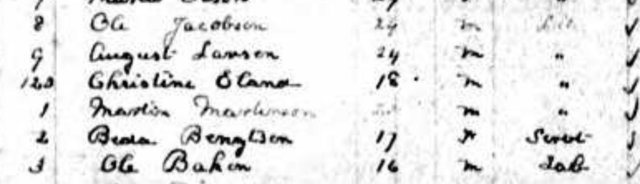 8 Ole Jacobson 24 m Lab
9 August Larson 24 m "
120 Christine Eland 18 m "
1 Martin Martinson m "
2 Beda Bengtson 17 Servt
3 Ole Baken 16 m Lab